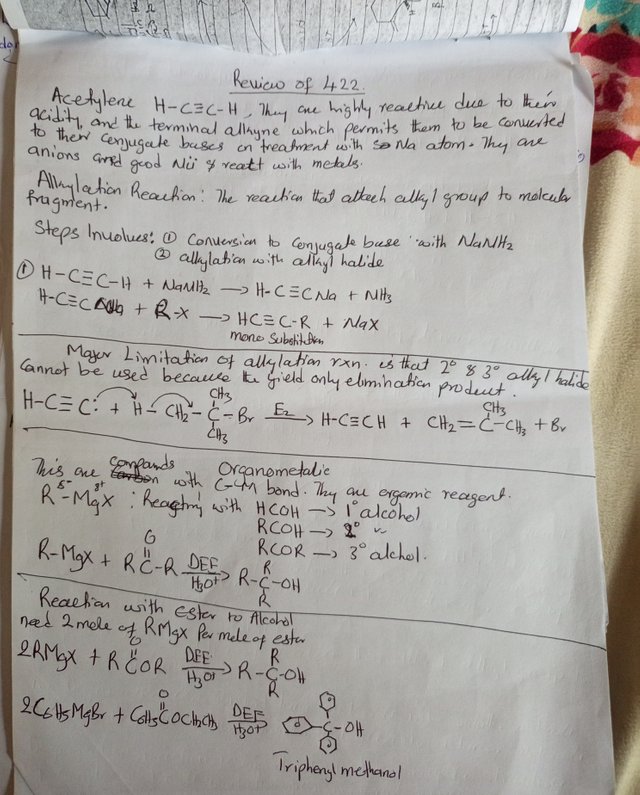 Review of 422.
Acetylene H-C≡C-H, They are highly reactive due to their
acidity, and the terminal alkyne which permits them to be converted
to their conjugate bases on treatment with Na atom. They are
anions and good Nü & react with metals.
Alkylation Reaction: The reaction that attach alkyl group to molecular
fragment.
Steps Involves: ① Conversion to conjugate base with NaNH2
② alkylation with alkyl halide
① H-C≡C-H + NaNH2 → H-C≡CNa + NH3
H-C≡CNa + R-X → HC≡C-R + NaX
mono Substitution
Major Limitation of alkylation rxn. is that 2° & 3° alkyl halide
cannot be used because the yield only elimination product.
CH3 CH3
H-C≡C: + H-CH2-C-Br E2→ H-C≡CH + CH2=C-CH3 + Br
CH3
Organometalic
This are compounds with C-M bond. Thy are organic reagent.
δ- δ+
R-MgX : Reacting with HCOH → 1° alcohol
RCOH → 2° "
RCOR → 3° alchol.
O R
R-MgX + RC-R DEE→ R-C-OH
H3O+ R
Reaction with Ester to Alcohol
need 2mole of RMgX Per mole of ester
O R
2RMgX + RCOR DEE→ R-C-OH
H3O+ R
O
2C6H5MgBr + C6H5COCH2CH3 DEE→ C-OH
H3O+
Triphenyl methanol